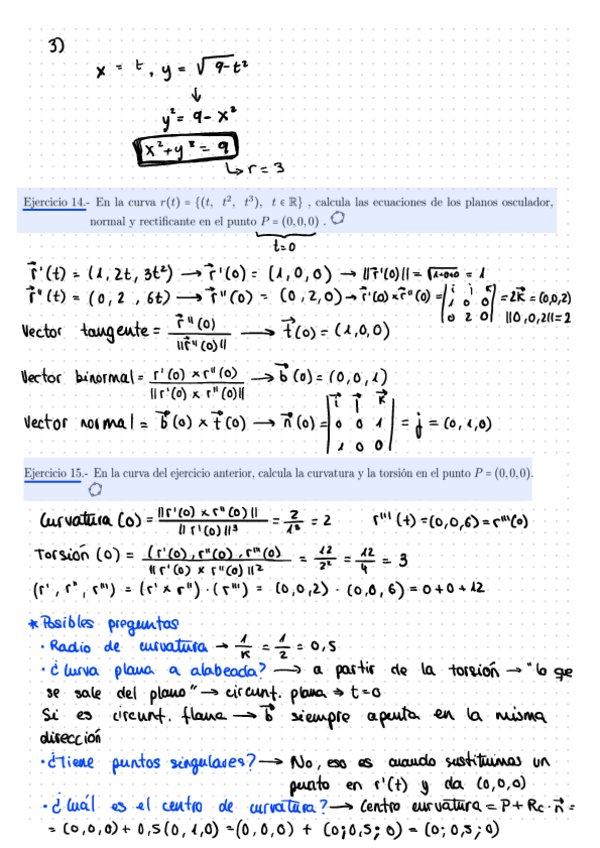 3)
x = t, y = √9-t²
↓
y² = 9 - x²
x² + y² = 9
↳ r = 3
Ejercicio 14.- En la curva r(t) = {(t, t², t³), t ∈ ℝ} , calcula las ecuaciones de los planos osculador,
normal y rectificante en el punto P = (0, 0, 0) .
t=0
r⃗'(t) = (1, 2t, 3t²) → r⃗'(0) = (1, 0, 0) → ||r⃗'(0)|| = √1+0+0 = 1
r⃗''(t) = (0, 2, 6t) → r⃗''(0) = (0, 2, 0) → r⃗'(0) × r⃗''(0) = |i j k; 1 0 0; 0 2 0| = 2k⃗ = (0,0,2) ||0,0,2||=2
Vector tangente = r⃗''(0) / ||r⃗''(0)|| → t⃗(0) = (1,0,0)
Vector binormal = r'(0) × r''(0) / ||r'(0) × r''(0)|| → b⃗(0) = (0,0,1)
Vector normal = b⃗(0) × t⃗(0) → n⃗(0) = |i⃗ j⃗ k⃗; 0 0 1; 1 0 0| = j = (0,1,0)
Ejercicio 15.- En la curva del ejercicio anterior, calcula la curvatura y la torsión en el punto P = (0, 0, 0).
Curvatura (0) = ||r'(0) × r''(0)|| / ||r'(0)||³ = 2/1³ = 2 r'''(t) = (0,0,6) = r'''(0)
Torsión (0) = (r'(0), r''(0), r'''(0)) / ||r'(0) × r''(0)||² = 12/2² = 12/4 = 3
(r', r'', r''') = (r' × r'') · (r''') = (0,0,2) · (0,0,6) = 0+0+12
* Posibles preguntas
· Radio de curvatura → 1/K = 1/2 = 0,5
· ¿Curva plana a alabeada? → a partir de la torsión → "lo que
se sale del plano" → circunf. plana → t=0
Si es circunf. plana → b⃗ siempre apunta en la misma
dirección
· ¿Tiene puntos singulares? → No, eso es cuando sustituimos un
punto en r'(t) y da (0,0,0)
· ¿Cuál es el centro de curvatura? → Centro curvatura = P + Rc · n⃗ =
= (0,0,0) + 0,5(0,1,0) = (0,0,0) + (0;0,5;0) = (0; 0,5; 0)